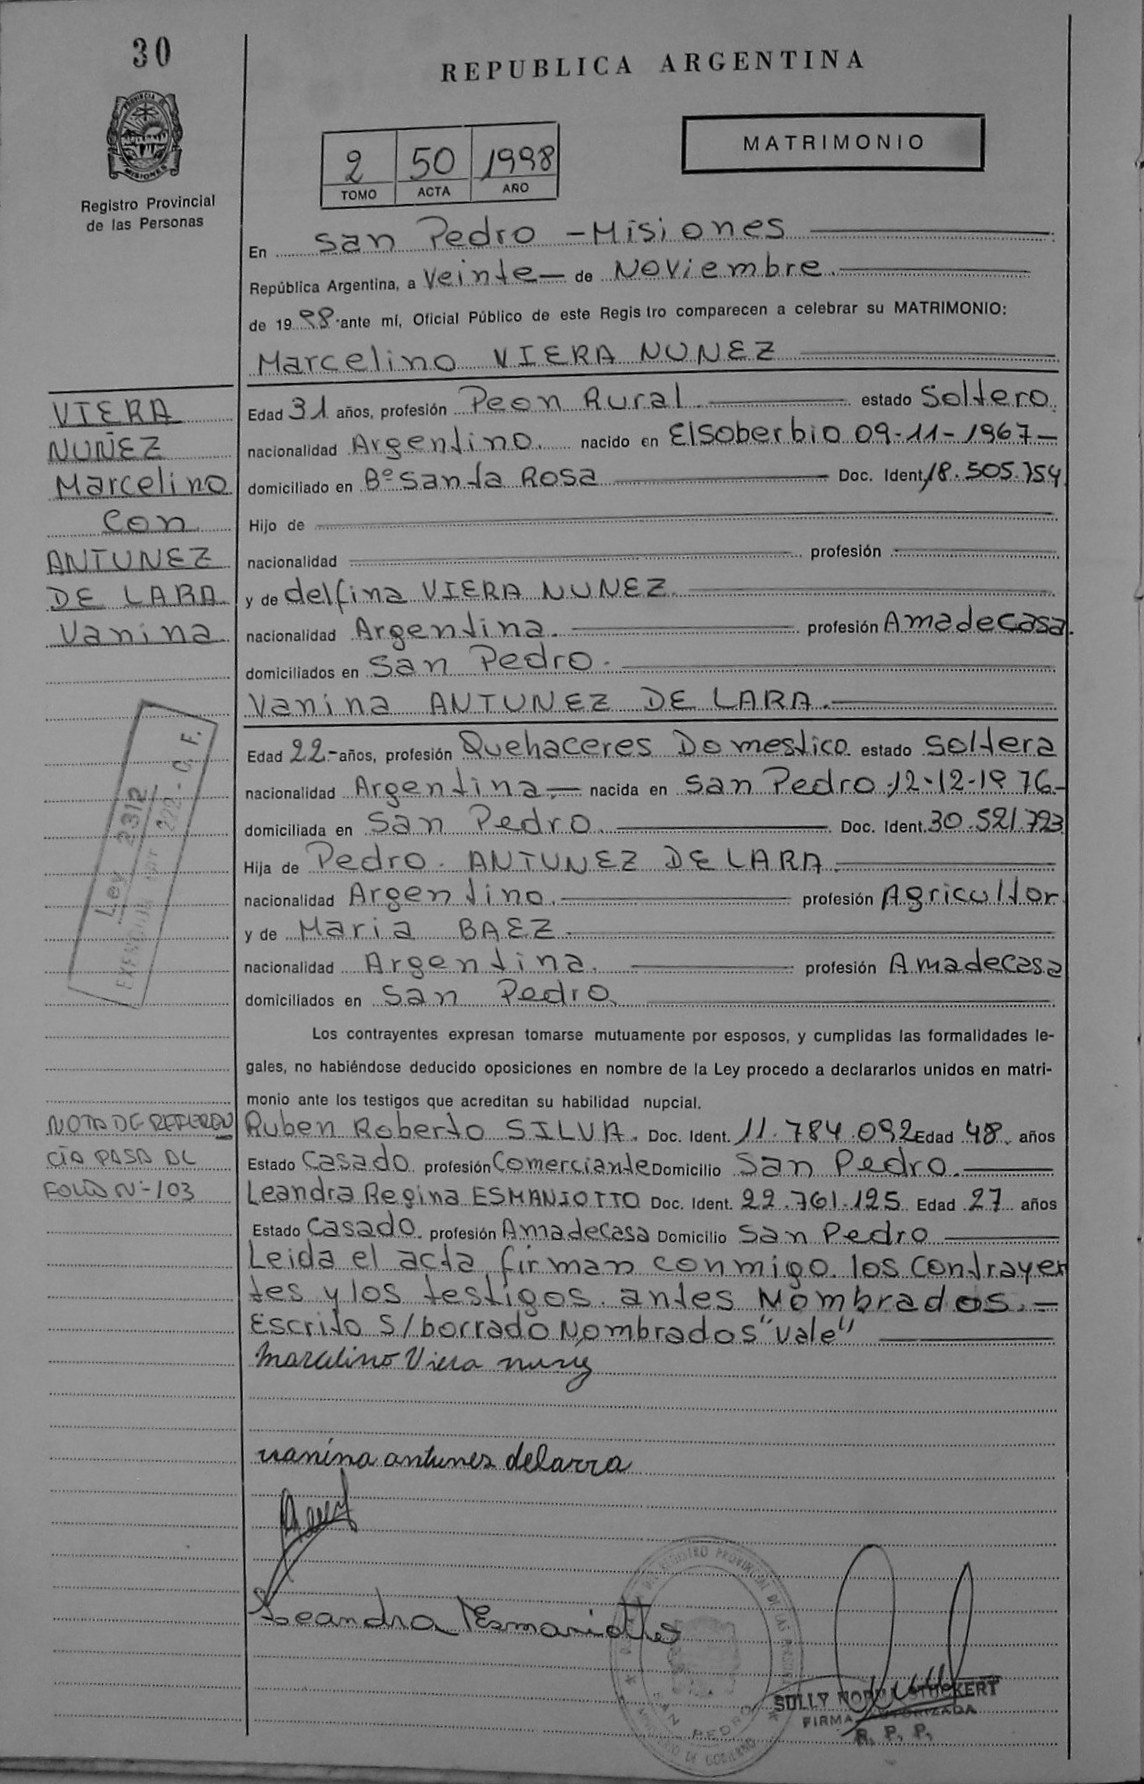 30
REPUBLICA ARGENTINA
MATRIMONIO
2 50 1998
TOMO ACTA AÑO
PROVINCIA DE MISIONES
Registro Provincial
de las Personas
En San Pedro - Misiones
República Argentina, a veinte — de Noviembre.
de 1998 ante mí, Oficial Público de este Registro comparecen a celebrar su MATRIMONIO:
Marcelino VIERA NUNEZ
VIERA
NUÑEZ
Marcelino
Con
ANTUNEZ
DE LARA
Vanina
Edad 31 años, profesión Peon Rural. estado Soltero.
nacionalidad Argentino. nacido en ElSoberbio 09-11-1967-
domiciliado en Bº Santa Rosa Doc. Ident. 18.505.754
Hijo de
nacionalidad profesión
y de delfina VIERA NUNEZ.
nacionalidad Argentina. profesión Amadecasa.
domiciliados en San Pedro.
Vanina ANTUNEZ DE LARA.
Edad 22.- años, profesión Quehaceres Domestico. estado Soltera
nacionalidad Argentina.— nacida en San Pedro 12-12-1976-
domiciliada en San Pedro. Doc. Ident. 30.521.723
Hija de Pedro. ANTUNEZ DE LARA.
nacionalidad Argentino. profesión Agricultor.
y de Maria BAEZ.
nacionalidad Argentina. profesión Amadecasa
domiciliados en San Pedro.
Ley 2312
Los contrayentes expresan tomarse mutuamente por esposos, y cumplidas las formalidades le-
gales, no habiéndose deducido oposiciones en nombre de la Ley procedo a declararlos unidos en matri-
monio ante los testigos que acreditan su habilidad nupcial.
NOTA DE REFEREN
CIA PASA AL
FOLIO Nº-103
Ruben Roberto SILVA. Doc. Ident. 11.784.092 Edad 48. años
Estado Casado. profesión Comerciante Domicilio San Pedro.
Leandra Regina ESMANIOTTO Doc. Ident. 22.761.125 Edad 27 años
Estado Casado. profesión Amadecasa Domicilio San Pedro
Leida el acta firman conmigo los Contrayen
tes y los testigos antes Nombrados.—
Escrito S/borrado Nombrados "Vale"
Marcelino Viera nuñz
vanina antunes delarra
Leandra Esmaniotto
SAN PEDRO
FIRMA AUTORIZADA
R. P. P.